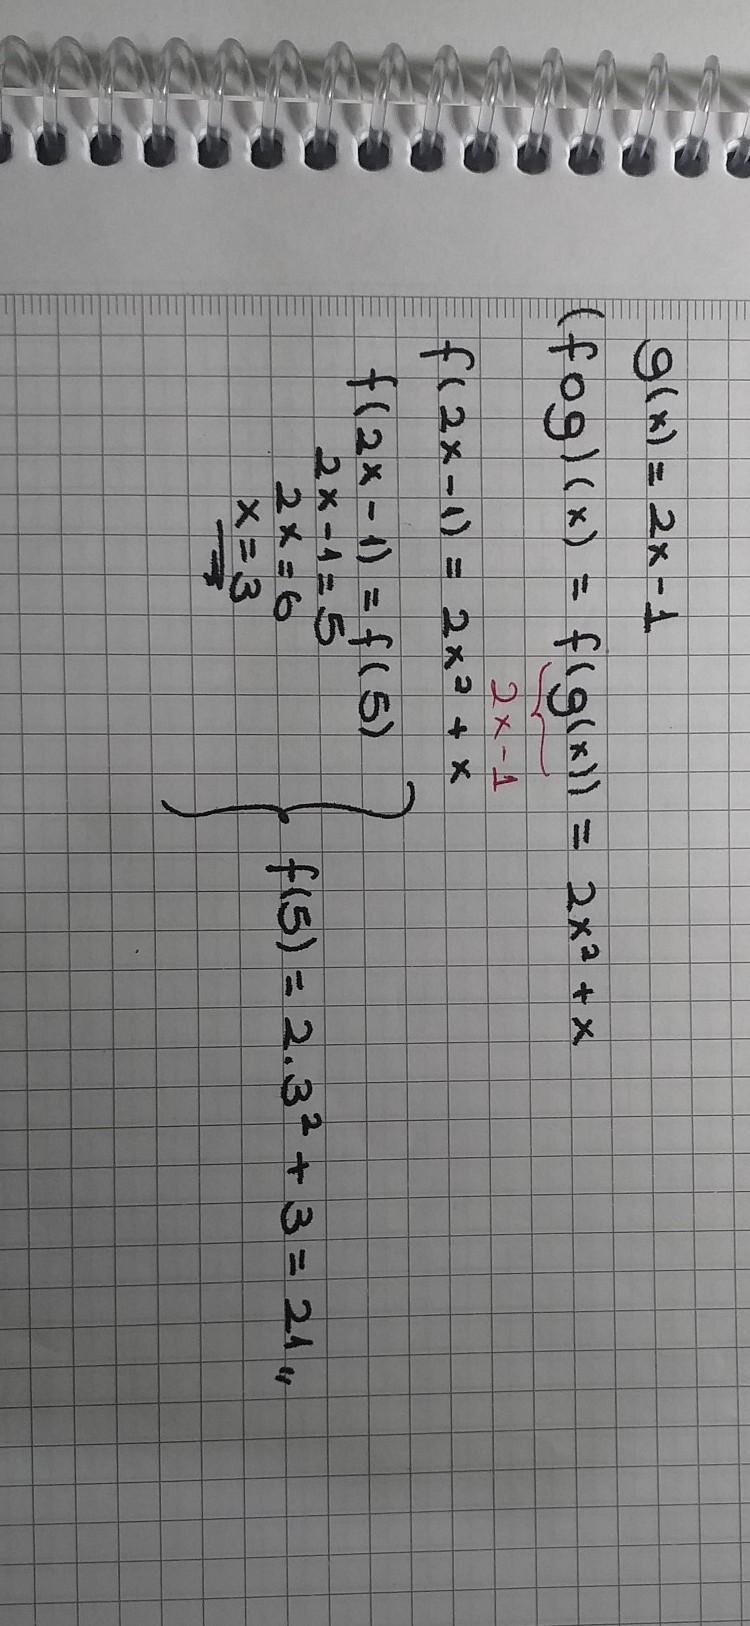 g(x) = 2x-1
(fog)(x) = f(g(x)) = 2x² + x
2x-1
f(2x-1) = 2x² + x
f(2x-1) = f(5)
2x-1=5
2x=6
x=3
f(5) = 2.3² + 3 = 21 "